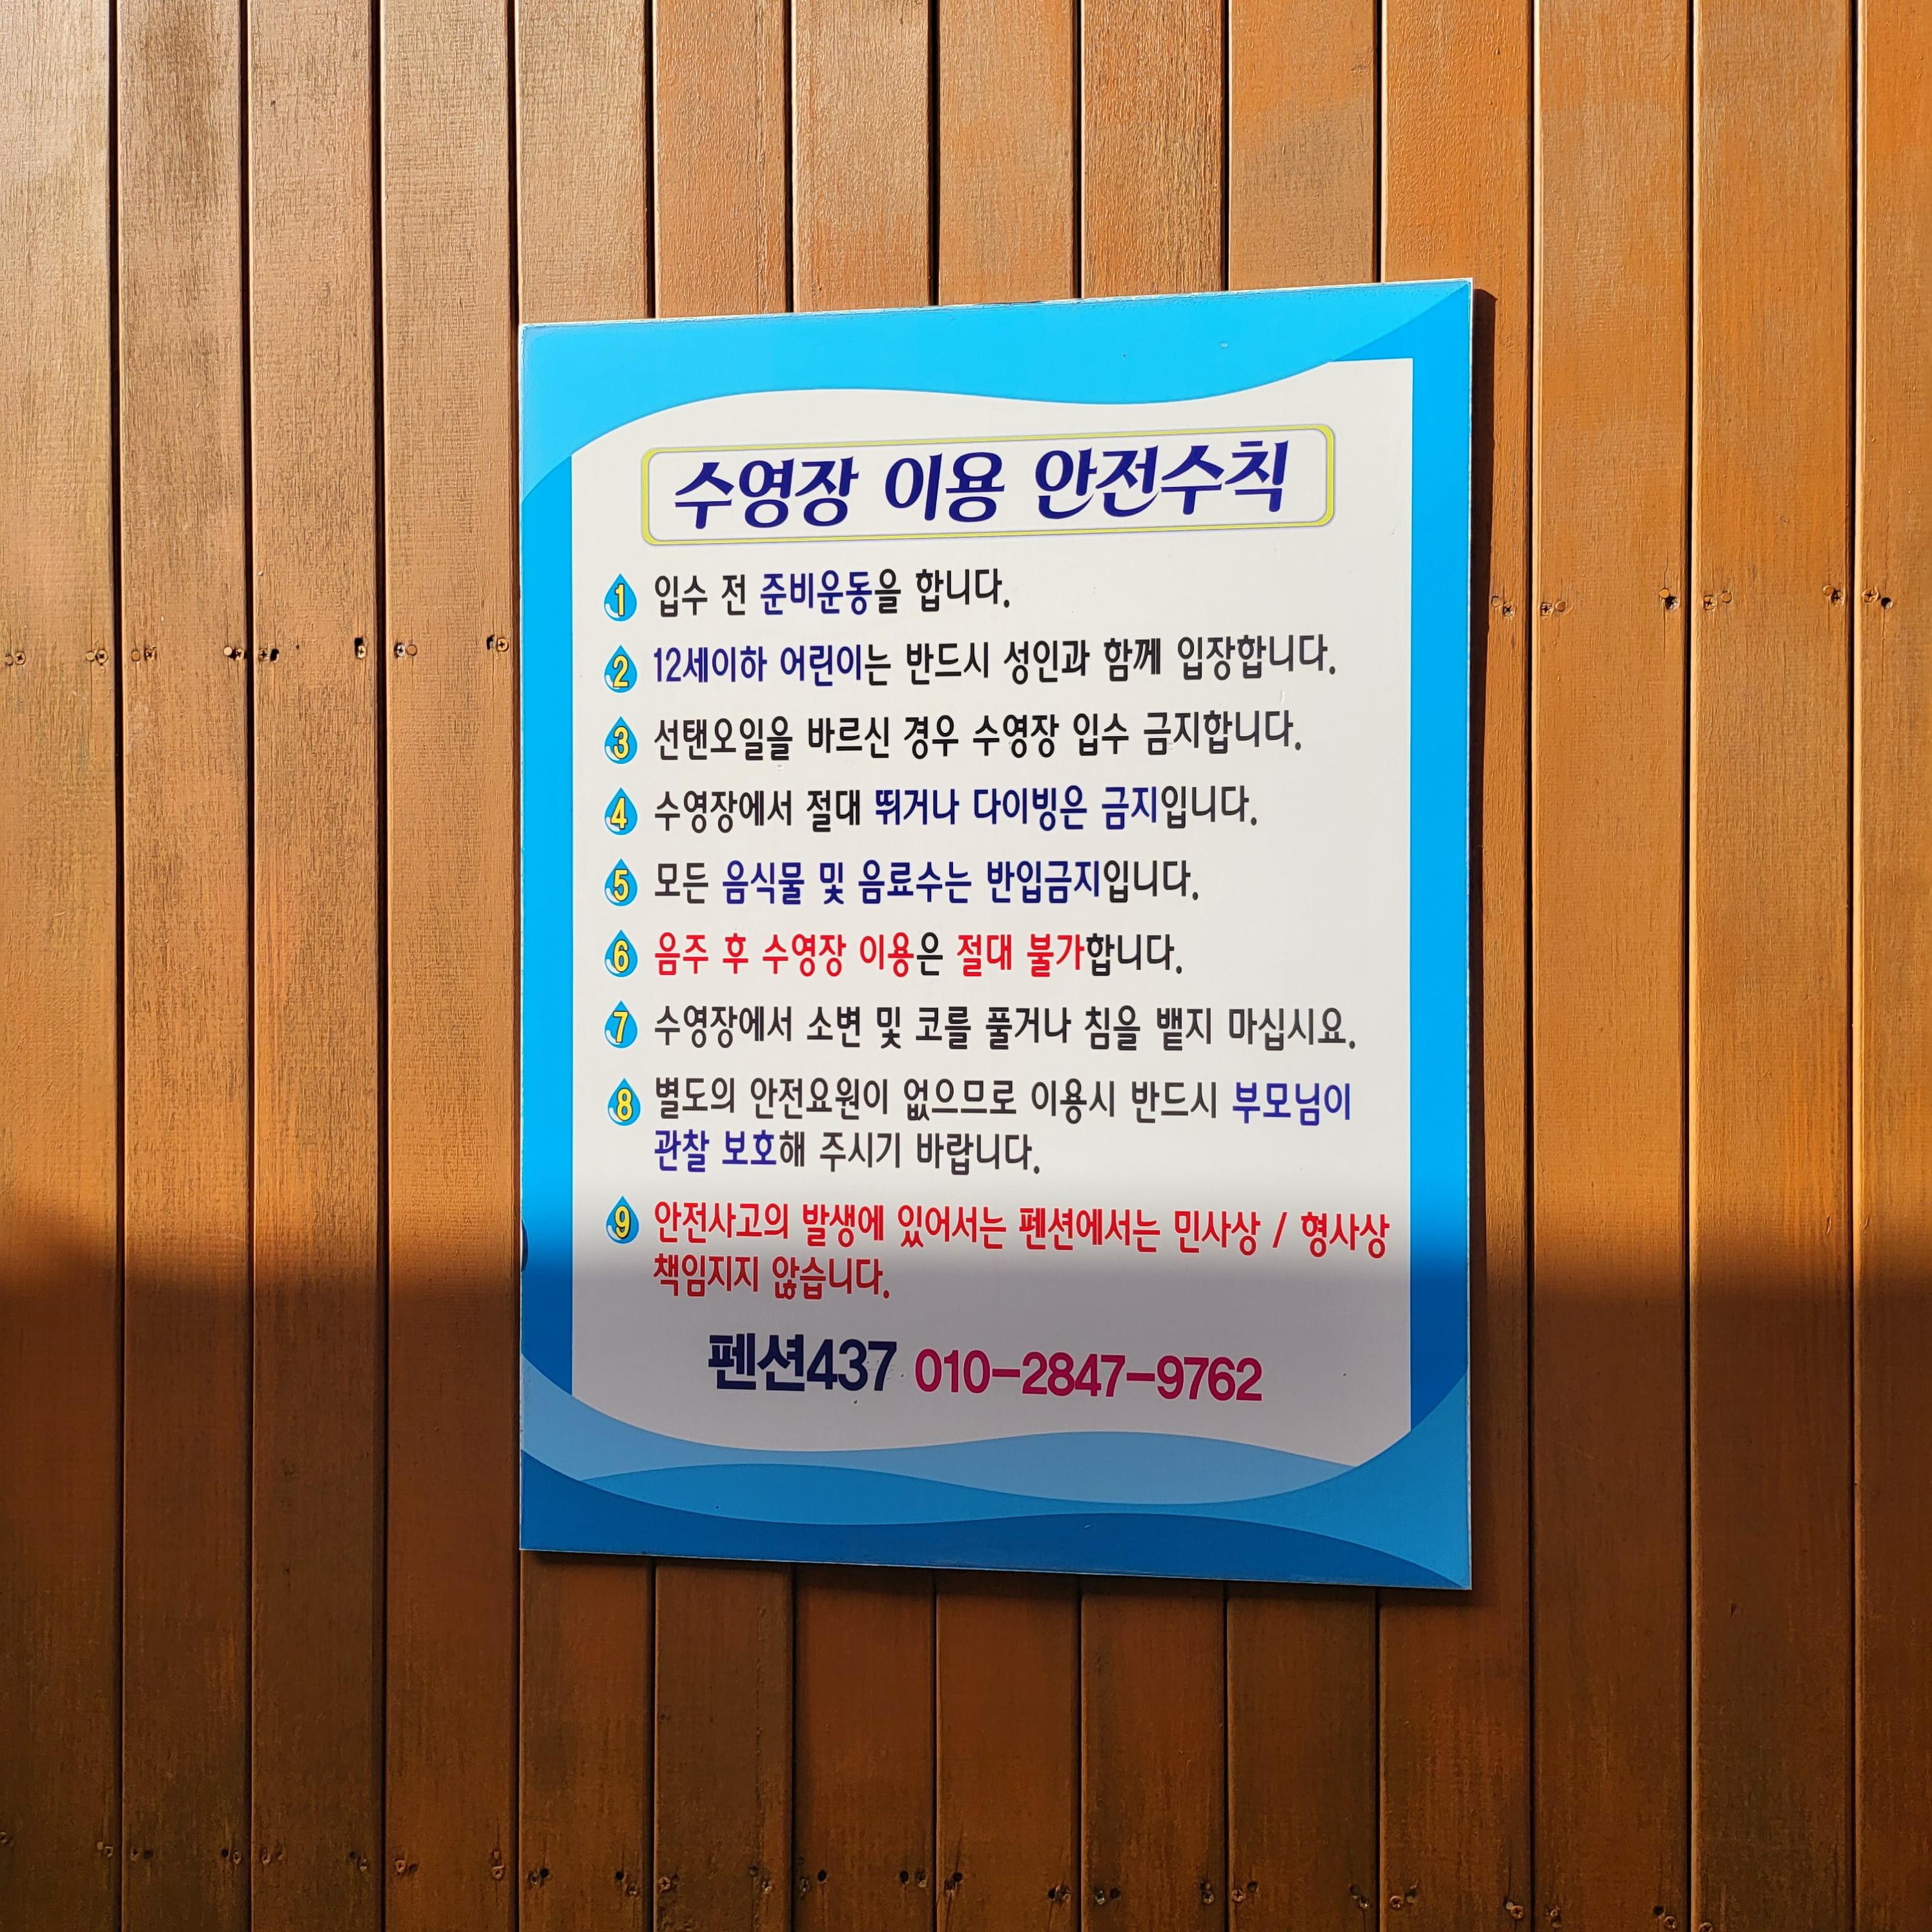 수영장 이용 안전수칙
1 입수 전 준비운동을 합니다.
2 12세이하 어린이는 반드시 성인과 함께 입장합니다.
3 선탠오일을 바르신 경우 수영장 입수 금지합니다.
4 수영장에서 절대 뛰거나 다이빙은 금지입니다.
5 모든 음식물 및 음료수는 반입금지입니다.
6 음주 후 수영장 이용은 절대 불가합니다.
7 수영장에서 소변 및 코를 풀거나 침을 뱉지 마십시요.
8 별도의 안전요원이 없으므로 이용시 반드시 부모님이
관찰 보호해 주시기 바랍니다.
9 안전사고의 발생에 있어서는 펜션에서는 민사상 / 형사상
책임지지 않습니다.
펜션437 010-2847-9762